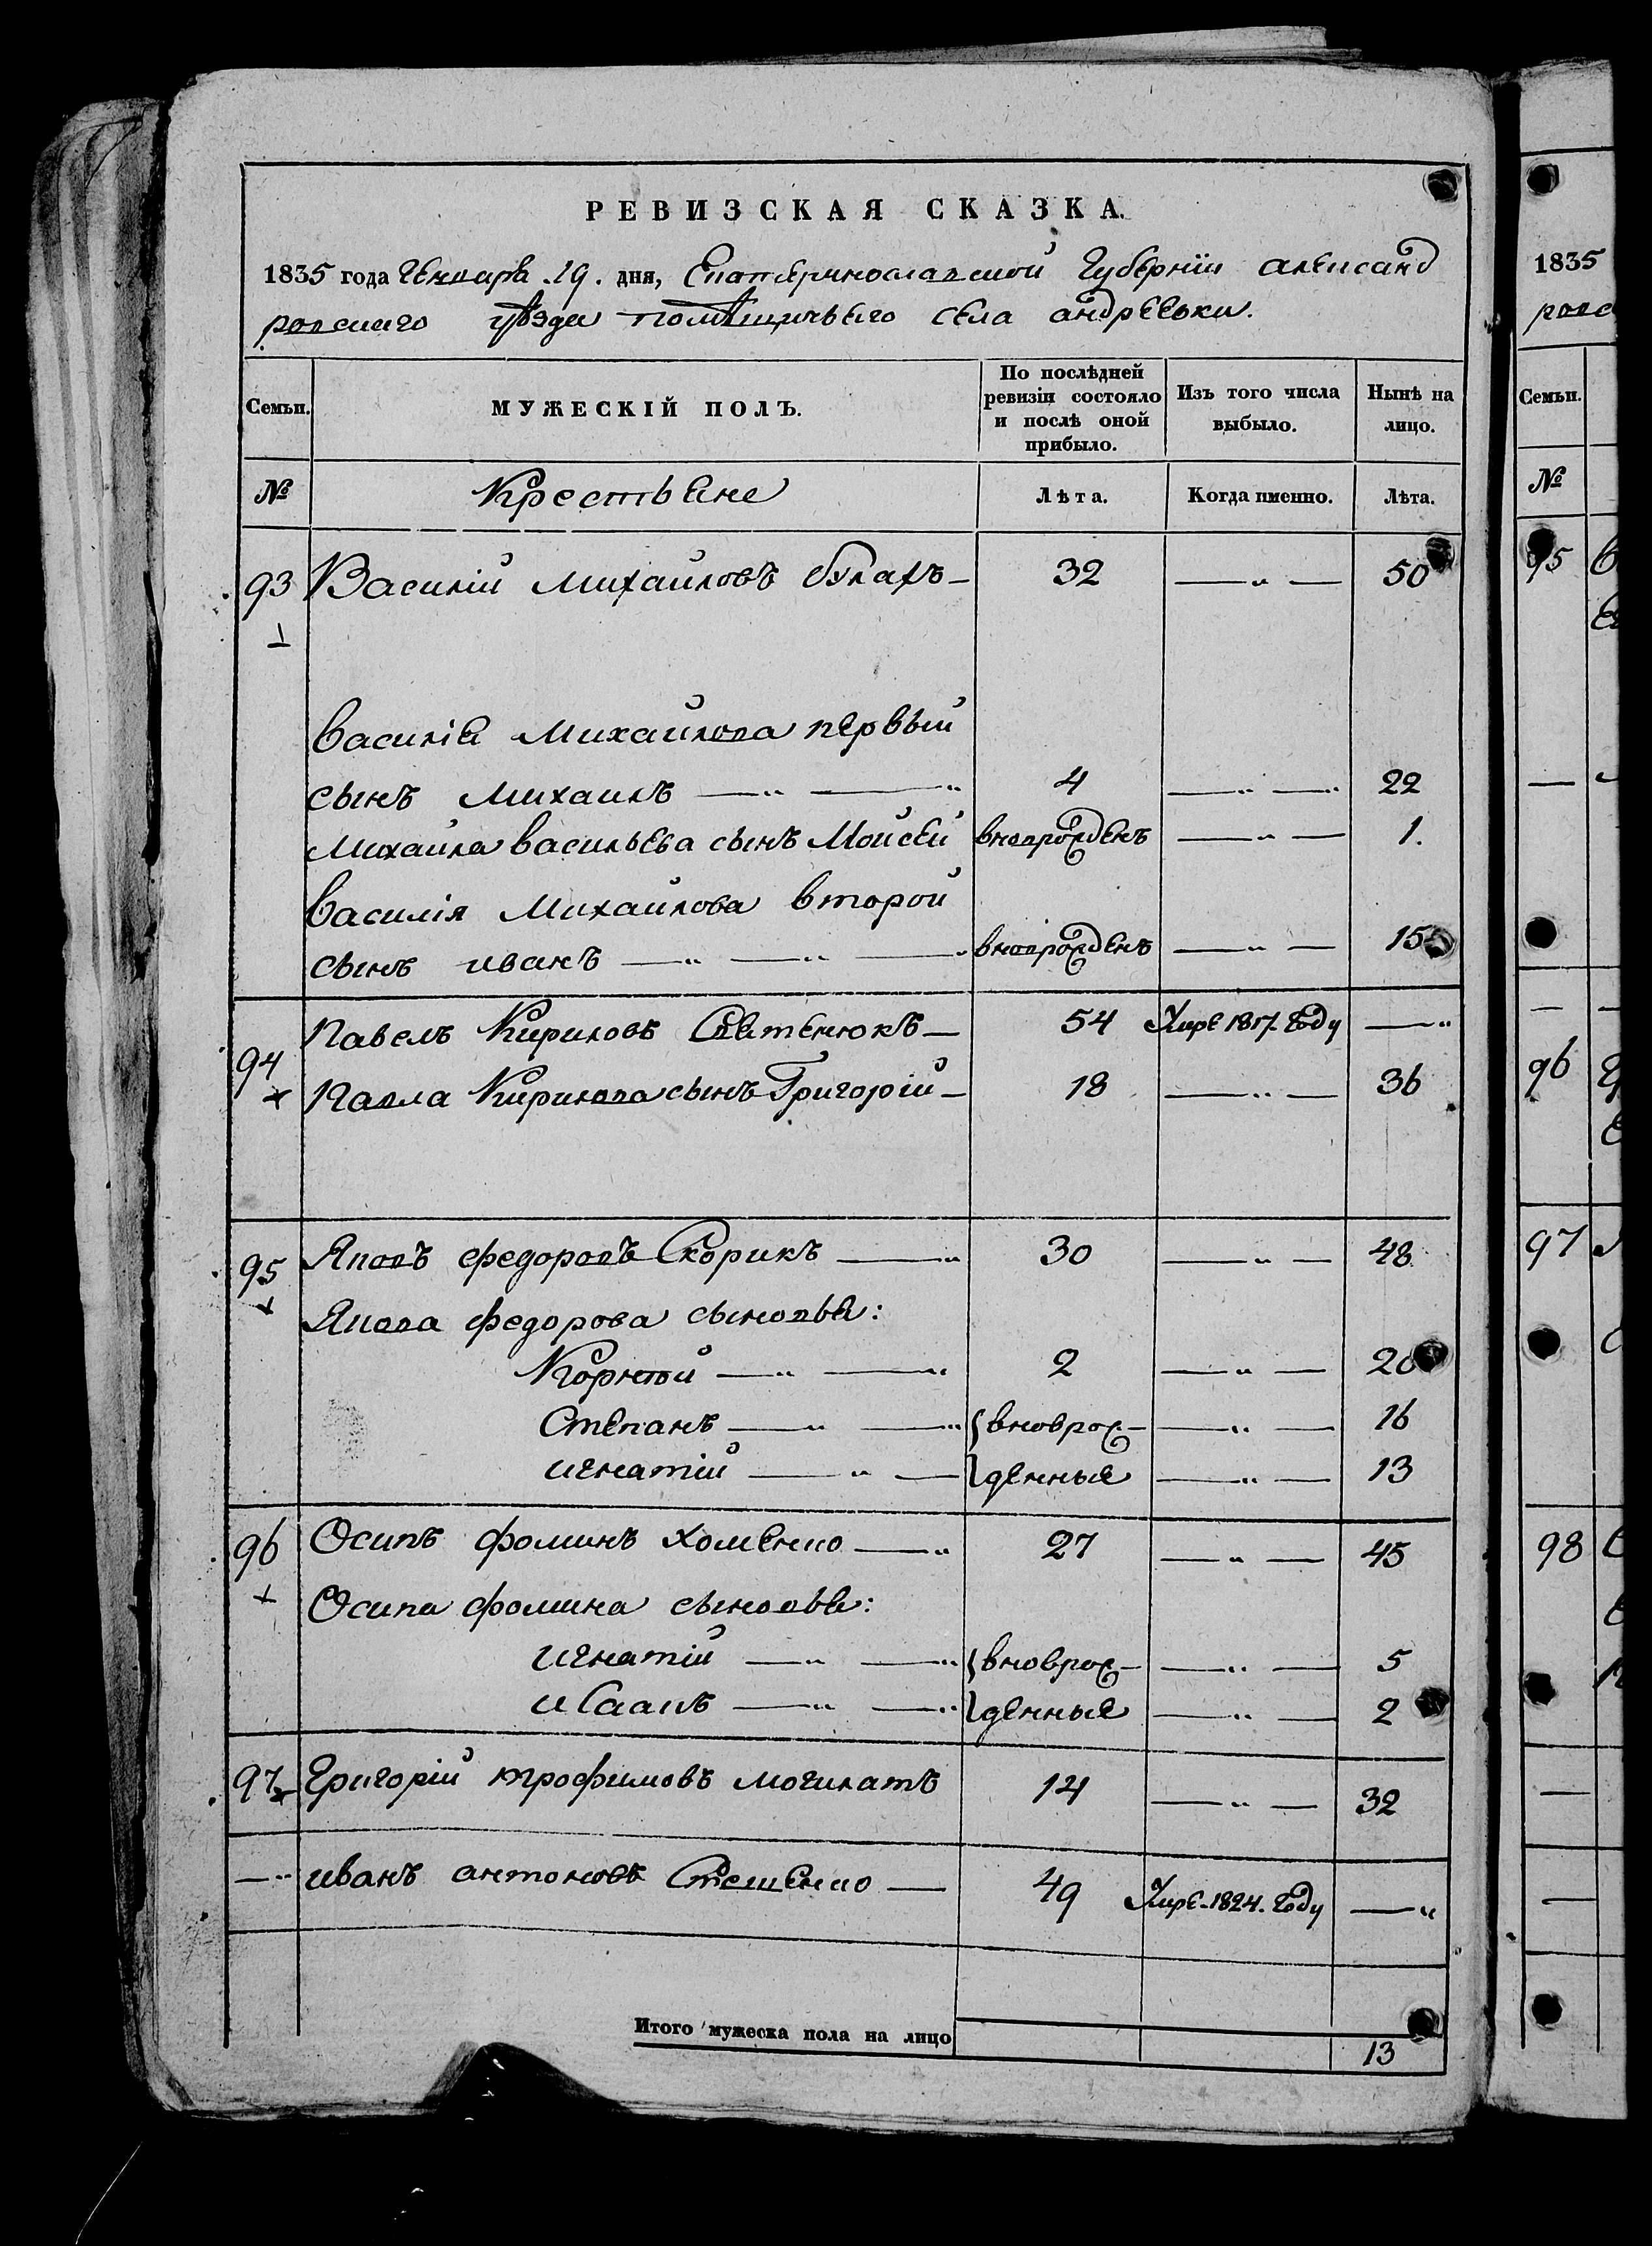 РЕВИЗСКАЯ СКАЗКА.
1835 года Генваря .19. дня, Екатеринославской Губернiи александ
ровскаго уѣзда помѣщичьего села андрееьки.
Семьи. МУЖЕСКIЙ ПОЛЪ. По послѣдней ревизiи состояло и послѣ оной прибыло. Изъ того числа выбыло. Нынѣ на лицо.
№ Крестьяне Лѣта. Когда именно. Лѣта.
93 Василiй Михайловъ булахъ — 32 — „ — 50
василiя Михайлова первый
сынъ михаилъ — „ — „ 4 — „ — „ 22
михайла васильева сынъ Мойсей вноврожденъ — „ — 1.
василiя Михайлова второй
сынъ иванъ — „ — „ — „ вноврожденъ — „ — 15
94 Павелъ Кириловъ Светенюкъ — 54 Умре 1817. Году — „
Павла Кирилова сынъ Григорiй — 18 — „ — 36
95 Яковъ федоровъ Скорикъ — „ 30 — „ — 48
Якова федорова сыновья:
Корнѣй — „ — „ 2 — „ — 20
Степанъ — „ — „ вноврож- — „ — 16
игнатiй — „ — денные — „ — 13
96 Осипъ фоминъ хоменко — „ 27 — „ — 45
Осипа фомина сыновья:
игнатiй — „ — „ вноврож- — „ — 5
исаакъ — „ — „ денные — „ — 2
97 Григорiй трофимовъ могилатъ 14 — „ — 32
— „ иванъ антоновъ Стешенко — 49 Умре-1824. Году — „
Итого мужеска пола на лицо 13
1835
ровс
Семьи.
№
95
96
97
98